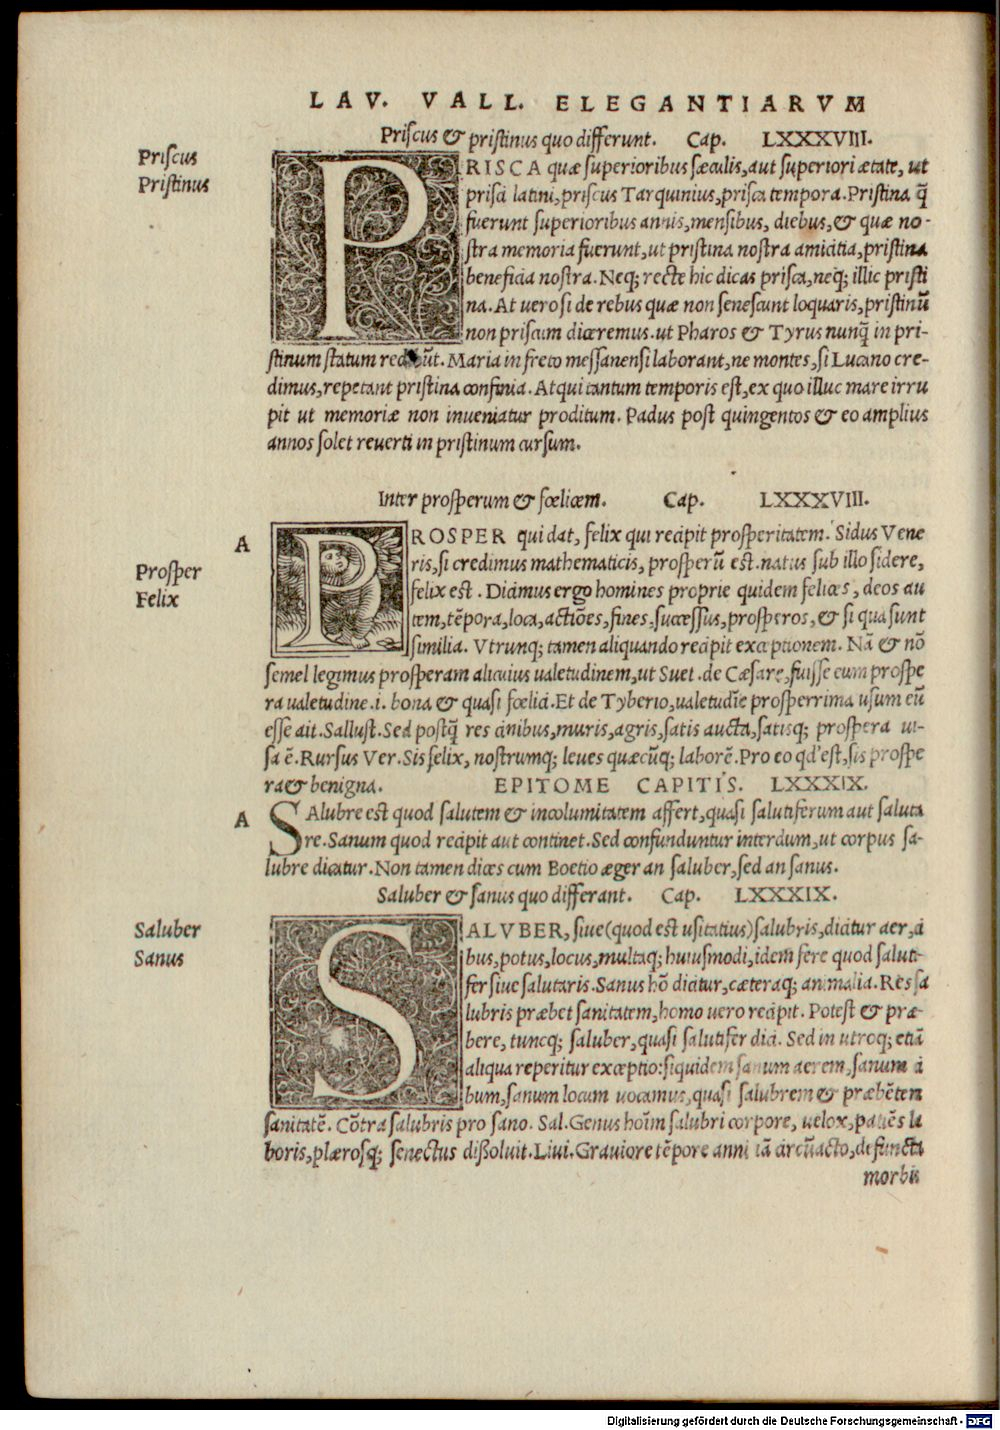 LAV. VALL. ELEGANTIARVM
Priſcus & priſtinus quo differunt. Cap. LXXXVIII.
Priſcus
Priſtinus
PRISCA quæ ſuperioribus ſæculis, aut ſuperiori ætate, ut
priſci latini, priſcus Tarquinius, priſca tempora. Priſtina q̃
fuerunt ſuperioribus annis, menſibus, diebus, & quæ no-
ſtra memoria fuerunt, ut priſtina noſtra amicitia, priſtina
beneficia noſtra. Neq; recte hic dicas priſca, neq; illic priſti
na. At uero ſi de rebus quæ non ſeneſcunt loquaris, priſtinũ
non priſcum diceremus. ut Pharos & Tyrus nunq̃ in pri-
ſtinum ſtatum ũt. Maria in freto meſſanenſi laborant, ne montes, ſi Lucano cre-
dimus, repetant priſtina confinia. Atqui tantum temporis eſt, ex quo illuc mare irru
pit ut memoriæ non inueniatur proditum. Padus poſt quingentos & eo amplius
annos ſolet reuerti in priſtinum curſum.
Inter proſperum & fœlicem. Cap. LXXXVIII.
A
Proſper
Felix
PROSPER qui dat, felix qui recipit proſperitatem. Sidus Vene
ris, ſi credimus mathematicis, proſperũ eſt. natus ſub illo ſidere,
felix eſt. Dicimus ergo homines proprie quidem felices, deos au
tem, tẽpora, loca, actiões, fines, ſucceſſus, proſperos, & ſi qua ſunt
ſimilia. Vtrunq; tamen aliquando recipit exceptionem. Nã & nõ
ſemel legimus proſperam alicuius ualetudinem, ut Suet. de Cæſare, fuiſſe eum proſpe
ra ualetudine .i. bona & quaſi fœlici. Et de Tyberio, ualetudĩe proſperrima uſum eũ
eſſe ait. Salluſt. Sed poſtq̃ res ciuibus, muris, agris, ſatis aucta, ſatisq; proſpera ui-
ſa ẽ. Rurſus Ver. Sis felix, noſtrumq; leues quæcũq; laborẽ. Pro eo qd' eſt, ſis proſpe
ra & benigna. EPITOME CAPITIS. LXXXIX.
A
SAlubre eſt quod ſalutem & incolumitatem affert, quaſi ſalutiferum aut ſaluta
re. Sanum quod recipit aut continet. Sed confunduntur interdum, ut corpus ſa-
lubre dicatur. Non tamen dices cum Boetio æger an ſaluber, ſed an ſanus.
Saluber & ſanus quo differant. Cap. LXXXIX.
Saluber
Sanus
SALVBER, ſiue (quod eſt uſitatius) ſalubris, dicitur aer, ci
bus, potus, locus, multaq; huiuſmodi, idem fere quod ſaluti-
fer ſiue ſalutaris. Sanus hõ dicitur, cæteraq; animalia. Res ſa
lubris præbet ſanitatem, homo uero recipit. Poteſt & præ-
bere, tuncq; ſaluber, quaſi ſalutifer dici. Sed in utroq; etiã
aliqua reperitur exceptio: ſiquidem ſanum aerem, ſanum ci
bum, ſanum locum uocamus, quaſi ſalubrem & præbẽtem
ſanitatẽ. Cõtra ſalubris pro ſano. Sal. Genus hoĩm ſalubri corpore, uelox, patiẽs la
boris, plæroſq; ſenectus diſſoluit. Liui. Grauiore tẽpore anni iã circũacto, defuncta
morbis
Digitalisierung gefördert durch die Deutsche Forschungsgemeinschaft - DFG